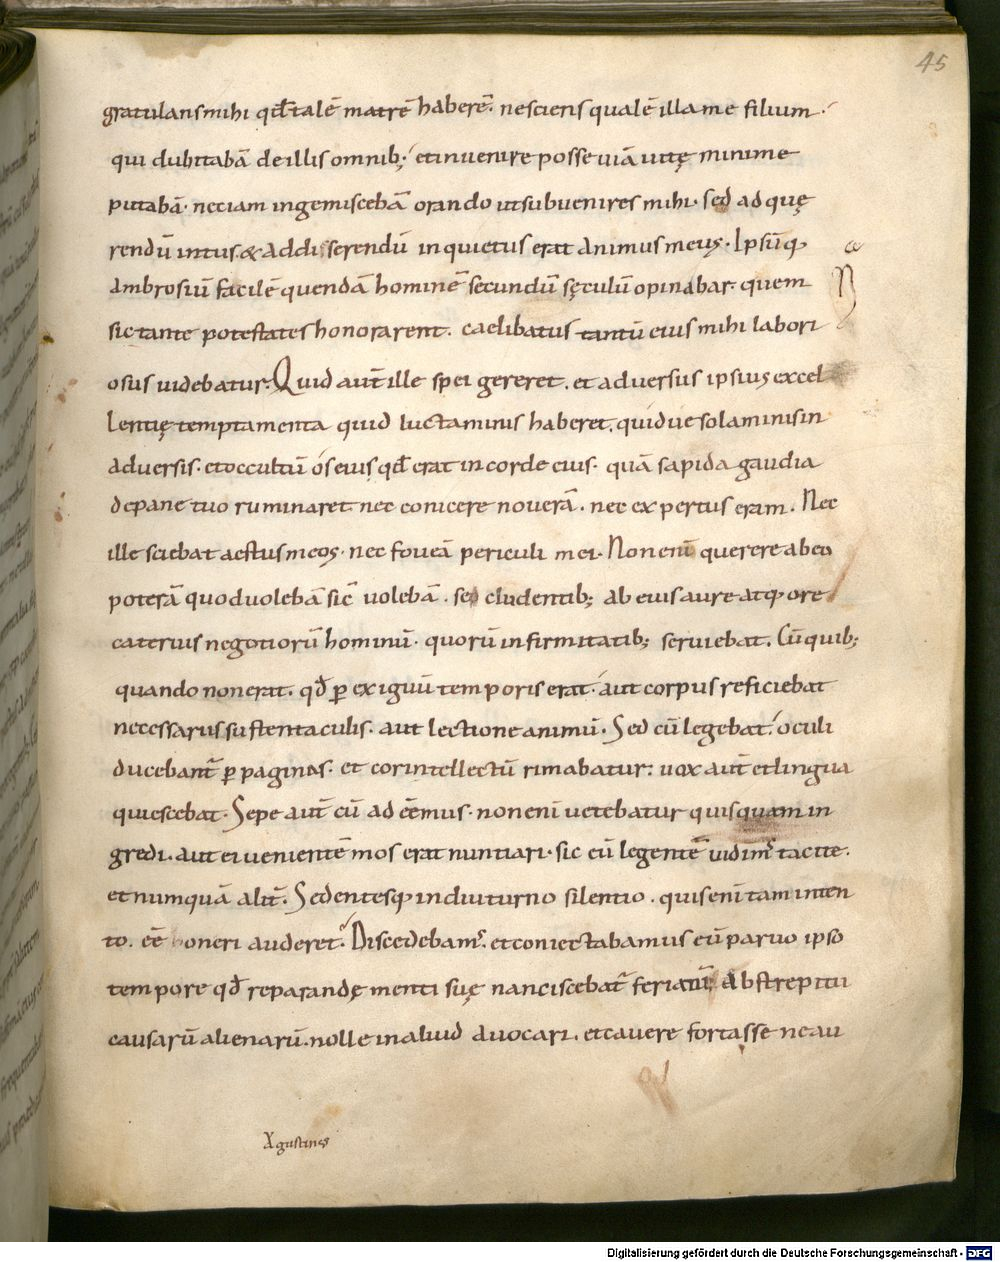 45
gratulans mihi qđ talē matrē haberē. nesciens qualē illa me filium.
qui dubitabā de illis omnib; et inuenire posse uiā uitę minime
putabā. nec iam ingemiscebā orando ut subuenires mihi. sed ad quę
rendū intus. & ad disserendū inquietus erat animus meus. Ipsūq;
ambrosiū facilē quendā hominē secundū sęculū opinabar. quem
sic tante potestates honorarent. caelibatus tantū eius mihi labori
osus uidebatur. Quid aut̄ ille spei gereret. et aduersus ipsius excel
lentię temptamenta quid luctaminis haberet. quidue solaminis in
aduersis. et occultū os eius qđ erat in corde eius. quā sapida gaudia
de pane tuo ruminaret nec conicere nouerā. nec expertus eram. Nec
ille sciebat aestus meos. nec foueā periculi mei. Non eni querere ab eo
poterā quod uolebā sic̄ uolebā. sed cludentib; ab eius aure atq; ore
cateruis negotiorū hominū. quorū infirmitatib; seruiebat. Cū quib;
quando non erat. qđ ꝑ exiguū temporis erat. aut corpus reficiebat
necessariis sustentaculis. aut lectione animū. Sed cū legebat. oculi
ducebant̄ ꝑ paginas. et cor intellectū rimabatur. uox aut̄ et lingua
quiescebat. Sepe aut̄ cū adeēmus. non eni uetebatur quisquam in
gredi. aut ei uenientē mos erat nuntiari. sic eū legentē uidim᾽ tacite.
et numquā alit̄. Sedentesq; in diuturno silentio. quis eni tam inten
to. eē honeri auderet. Discedebam᾽. et coniectabamus eū paruo ipso
tempore qđ reparandę menti suę nanciscebat̄ feriatū. Ab strepitu
causarū alienarū. nolle in aliud auocari. et cauere fortasse ne au
Agustinus
Digitalisierung gefördert durch die Deutsche Forschungsgemeinschaft - DFG